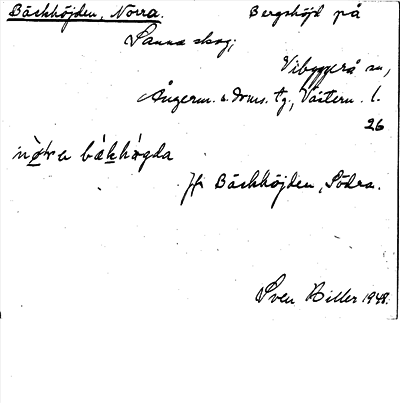 Bäckhöjden, Norra. Bergshöjd på
Sanna skog;
Vibyggerå sn,
Ångerm. s. dms. tg., Västern. l.
26
nò̱r̀a bákhǿgda
Jfr Bäckhöjden, Södra.
Sven Biller 1948.